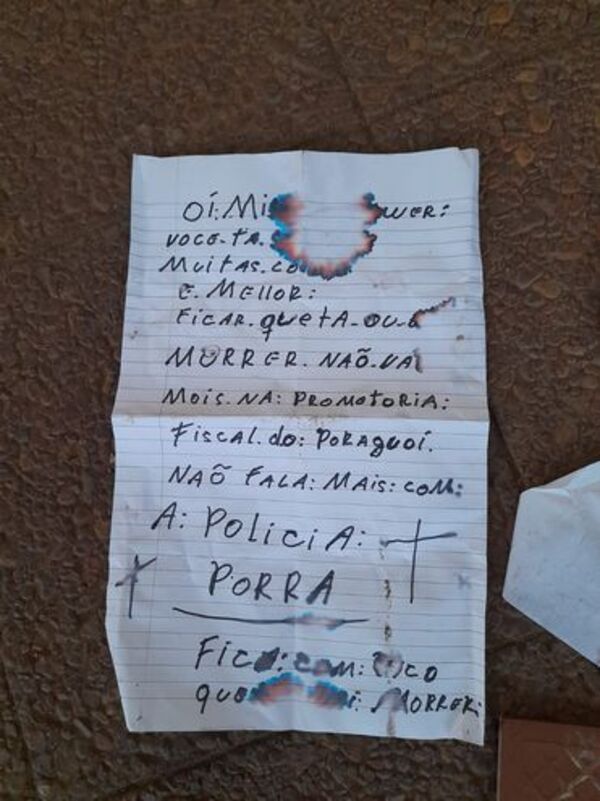 OÍ: Mi
WER:
VOCE-TA.
MUITAS.CO
E. MELLOR:
FICAR.QUETA-OU-
MORRER.NAÕ.VA
MOIS.NA: PROMOTORIA:
FISCAL.do: PORAGUOÍ.
NAÕ FALA: MAIS: COM:
A: POLICIA:
PORRA
FICA: COM: OCO
QUE I: MORRER: